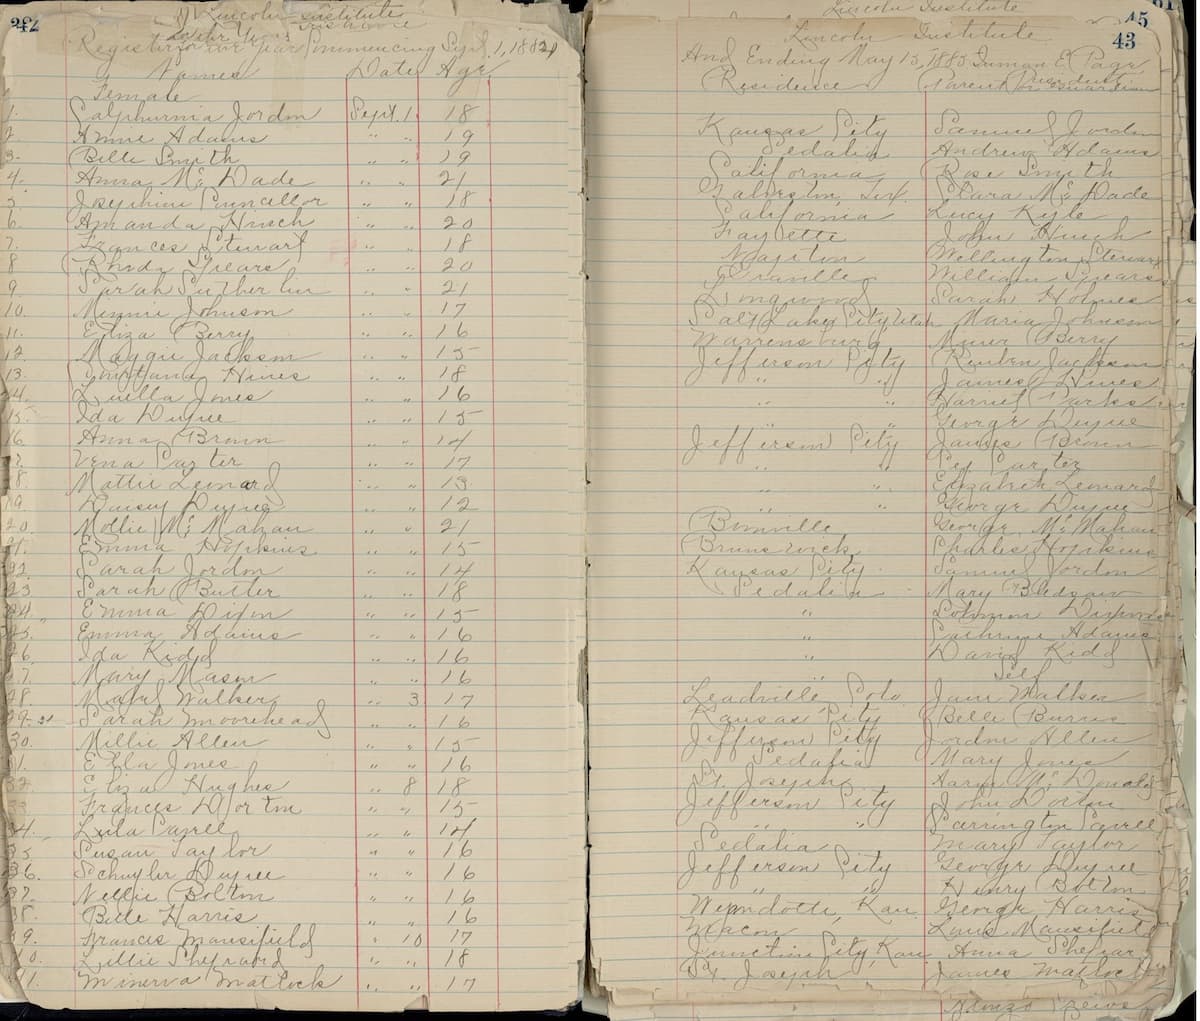 242
Lincoln Institute
Register for the Year Commencing Sept. 1, 1882
Names Date Age
Female
1. Calphurnia Jordon Sept. 1. 18
2. Annie Adams " " 19
3. Belle Smith " " 19
4. Anna Mc Dade " " 21
5. Josephine Councellor " " 18
6. Amanda Hinch " " 20
7. Frances Stewart " " 18
8 Rhoda Spears " " 20
9. Sarah Sutherlin " " 21
10. Minnie Johnson " " 17
11. Eliza Berry " " 16
12. Maggie Jackson " " 15
13. Hines " " 18
14. Luella Jones " " 16
15. Ida Dupee " " 15
16. Anna Brown " " 14
17. Vena Carter " " 17
18. Mattie Leonard " " 13
19. Daisey Dupee " " 12
20. Mollie Mc Mahan " " 21
21. Emma Hopkins " " 15
22. Sarah Jordon " " 14
23 Sarah Butler " " 18
24. Emma Dixon " " 15
25. Emma Adams " " 16
26. Ida Kidd " " 16
27. Mary Mason " " 16
28. Walker " 3 17
29. Sarah Moorehead " " 16
30. Millie Allen " " 15
31. Ella Jones " " 16
32 Eliza Hughes " 8 18
33. Frances Dorton " " 15
34. Lula Carrell " " 14
35 Susan Taylor " " 16
36. Schuyler Dupee " " 16
37. Nellie Bolton " " 16
38. Belle Harris " " 16
39. Frances Mansifield " 10 17
40. Lillie Shepard " " 18
41. Minerva Matlock " " 17
Lincoln Institute
45
Lincoln Institute
43
And Ending May 15, 1883 Inman E. Page
President
Residence Parent or Guardian
Kansas City Samuel Jordon
Sedalia Andrew Adams
California Rose Smith
Galveston, Tex. Clara Mc Dade
California Lucy Kyle
Fayette John Hinch
Wellington Stewart
William Spears
Longwood Sarah Holmes
Salt Lake City Utah Maria Johnson
Warrensburg Berry
Jefferson City Reuben Jackson
" " James Hines
" " Harriet Parks
" " George Dupee
Jefferson City James Brown
" " Carter
" " Elizabeth Leonard
" " George Dupee
Boonville George Mc Mahan
Brunswick Charles Hopkins
Kansas City Samuel Jordon
Sedalia Mary Bledsaw
" Solomon
" Catherine Adams
" David Kidd
" Self
Leadville Colo. Jane Walker
Kansas City Belle Burris
Jefferson City Jordon Allen
Sedalia Mary Jones
St. Joseph Aaron Mc Donald
Jefferson City John Dorton
" " Carrington Carrell
Sedalia Mary Taylor
Jefferson City George Dupee
" " Henry Bolton
Wyandotte, Kan. George Harris
Macon Louis Mansifield
Junction City, Kan Anna Shepard
St. Joseph James Matlock